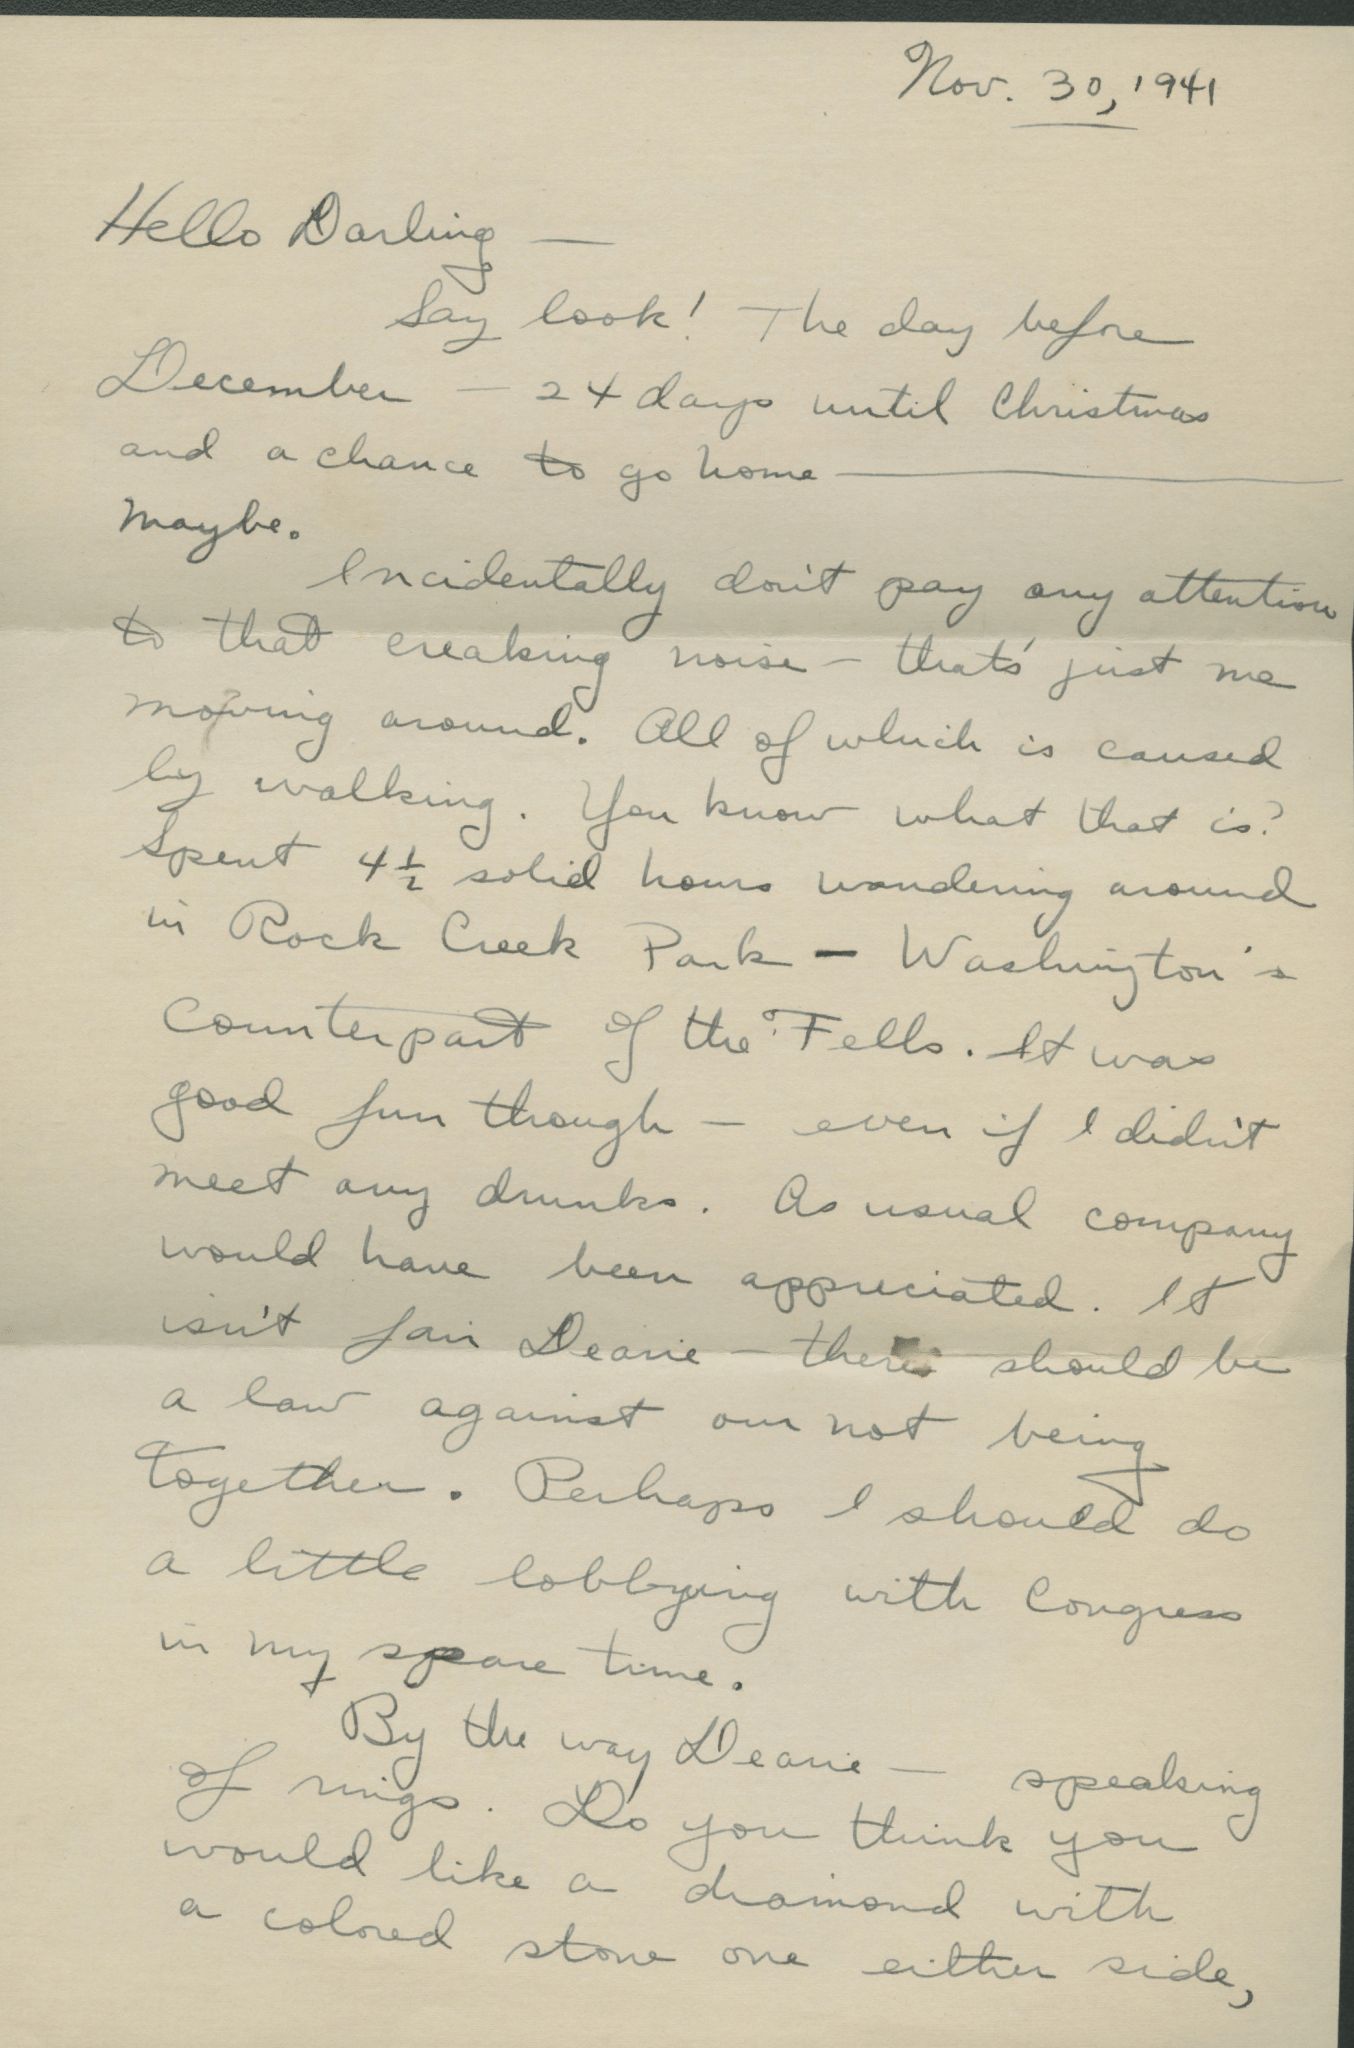 Nov. 30, 1941
Hello Darling —
Say look! The day before
December — 24 days until Christmas
and a chance to go home —
Maybe.
Incidentally don't pay any attention
to that creaking noise — that's just me
moving around. All of which is caused
by walking. You know what that is?
Spent 4½ solid hours wandering around
in Rock Creek Park — Washington's
counterpart of the Fells. It was
good fun though — even if I didn't
meet any drunks. As usual company
would have been appreciated. It
isn't fair Deanie — there should be
a law against our not being
together. Perhaps I should do
a little lobbying with Congress
in my spare time.
By the way Deanie — speaking
of rings. Do you think you
would like a diamond with
a colored stone one either side,